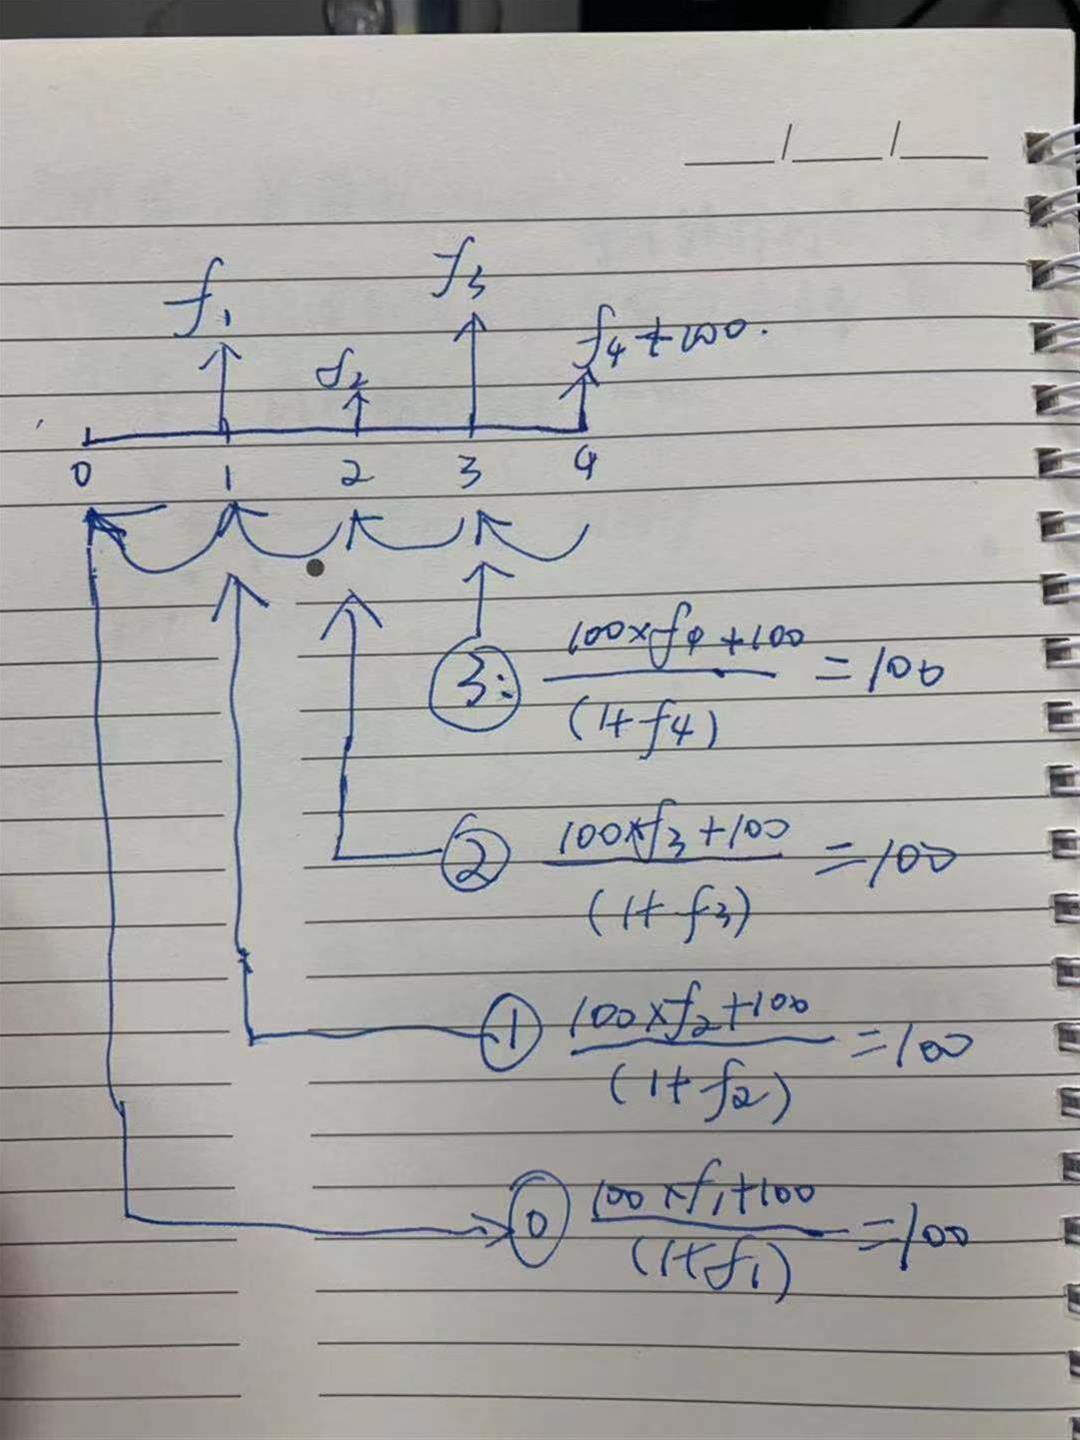 ___/___/___
f₁ f₃
f₂ f₄+100.
0 1 2 3 4
③: (100×f₄+100)/(1+f₄) = 100
② (100×f₃+100)/(1+f₃) = 100
① (100×f₂+100)/(1+f₂) = 100
⓪ (100×f₁+100)/(1+f₁) = 100